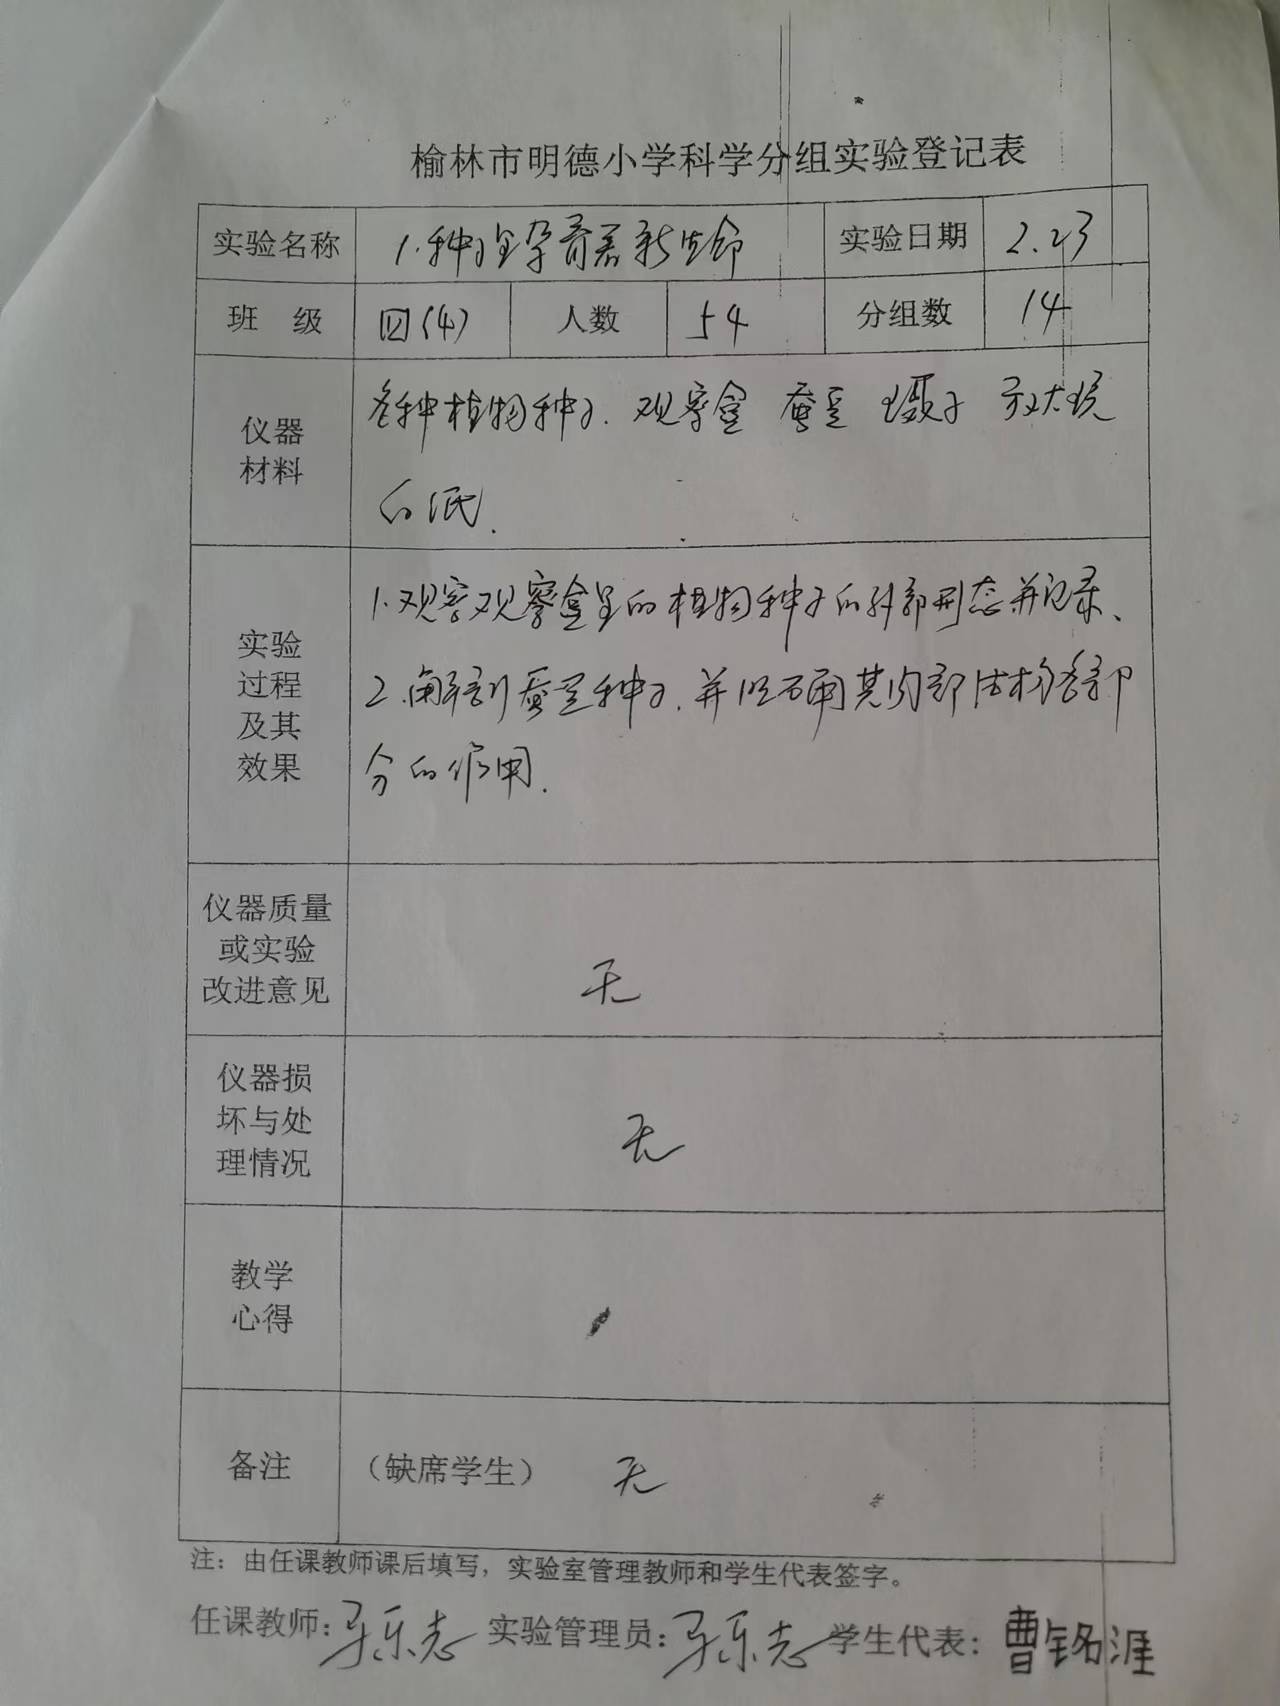 榆林市明德小学科学分组实验登记表
实验名称 1.种子里孕育着新生命 实验日期 2.23
班 级 四(4) 人数 54 分组数 14
仪器
材料
各种植物种子. 观察盒 蚕豆 镊子 放大镜
白纸.
实验
过程
及其
效果
1.观察观察盒里的植物种子的外部形态并记录、
2.解剖蚕豆种子.并明确其内部结构各部
分的作用.
仪器质量
或实验
改进意见
无
仪器损
坏与处
理情况
无
教学
心得
备注 （缺席学生） 无
注：由任课教师课后填写，实验室管理教师和学生代表签字。
任课教师: 实验管理员: 学生代表: 曹铭涯